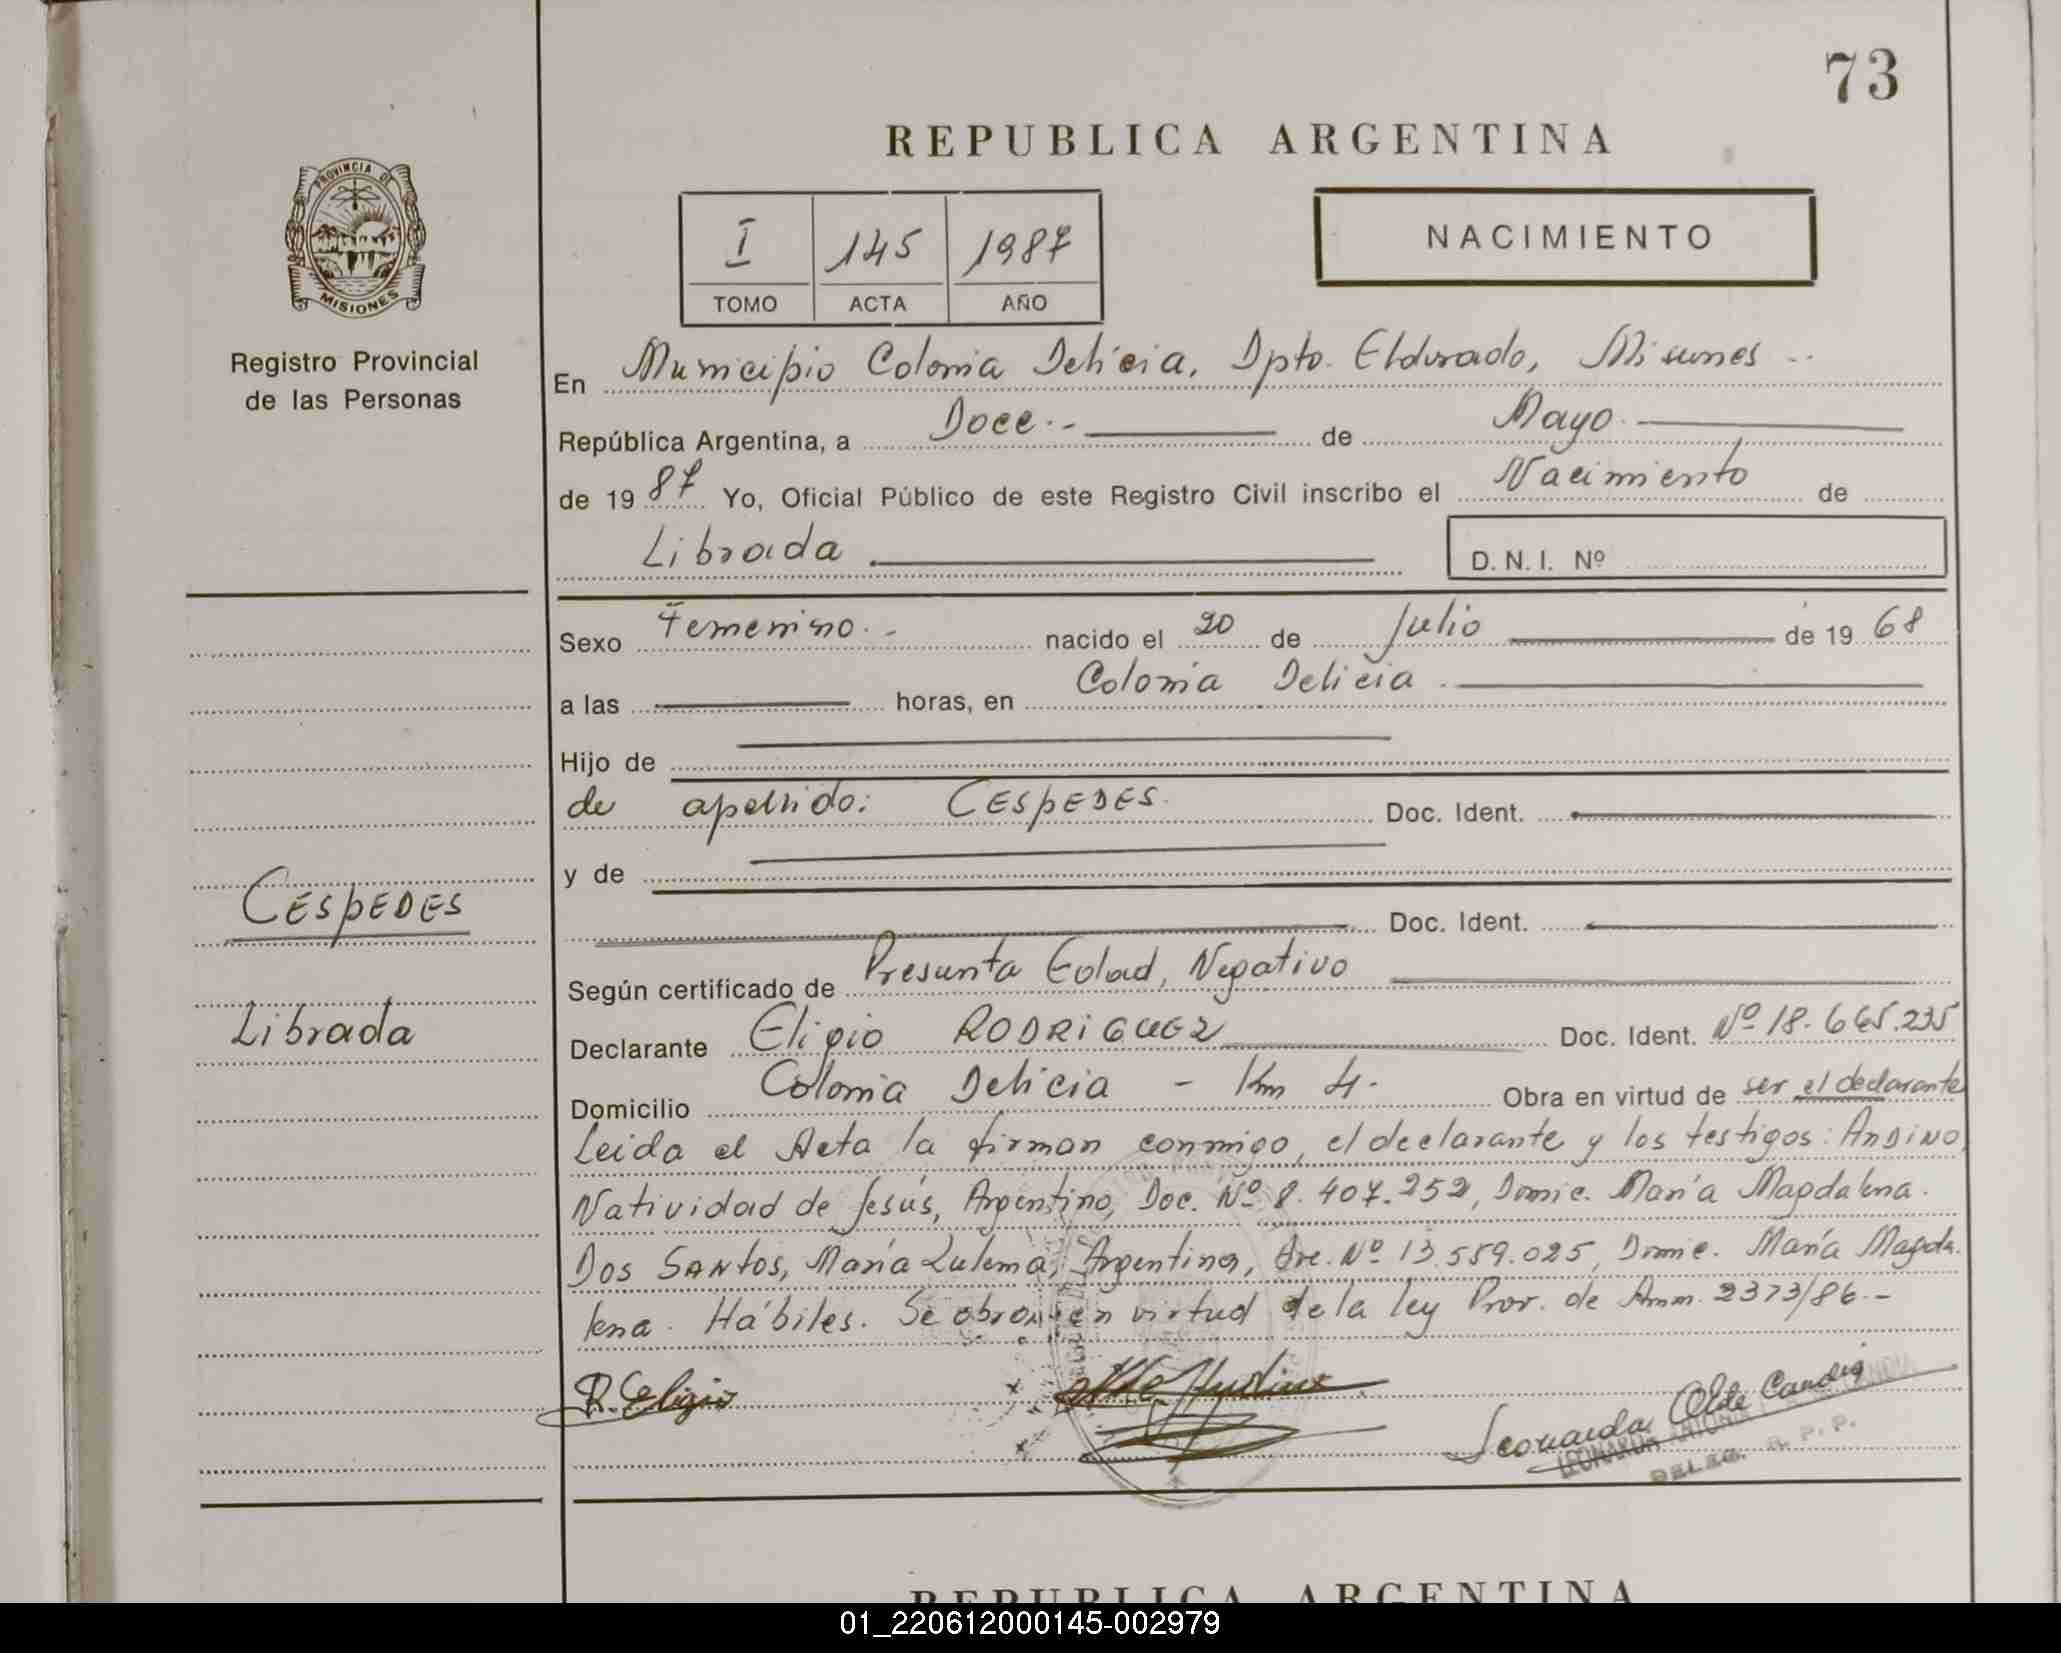 73
REPUBLICA ARGENTINA
PROVINCIA DE
MISIONES
Registro Provincial
de las Personas
I 145 1987
TOMO ACTA AÑO
NACIMIENTO
En Municipio Colonia Delicia, Dpto. Eldorado, Misiones
República Argentina, a Doce.- de Mayo.
de 1987 Yo, Oficial Público de este Registro Civil inscribo el Nacimiento de
Librada
D. N. I. Nº
Sexo Femenino.- nacido el 20 de Julio de 1968
a las horas, en Colonia Delicia.
Hijo de
de apellido: CESPEDES. Doc. Ident.
y de
Doc. Ident.
CESPEDES
Librada
Según certificado de Presunta Edad, Negativo
Declarante Eligio RODRIGUEZ Doc. Ident. Nº 18.665.235
Domicilio Colonia Delicia - Km 4. Obra en virtud de ser el declarante
Leida el Acta la firman conmigo, el declarante y los testigos: ANDINO,
Natividad de Jesús, Argentino, Doc. Nº 8.407.252, Domic. María Magdalena.
DOS SANTOS, María Zulema, Argentina, Doc. Nº 13.559.025, Domic. María Magda-
lena. Hábiles. Se obra en virtud de la ley Prov. de Amn. 2373/86.-
R. Eligio
Leonarda
LEONARDA ANTONIA
DELEG. R. P. P.
REPUBLICA ARGENTINA
01_220612000145-002979